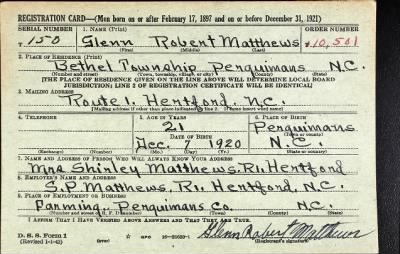 REGISTRATION CARD—(Men born on or after February 17, 1897 and on or before December 31, 1921)
SERIAL NUMBER 1. NAME (Print) ORDER NUMBER
T-150 Glenn Robert Matthews 10,501
(First) (Middle) (Last)
2. PLACE OF RESIDENCE (Print)
Bethel Township Perquimans N.C.
(Number and street) (Town, township, village, or city) (County) (State)
[THE PLACE OF RESIDENCE GIVEN ON THE LINE ABOVE WILL DETERMINE LOCAL BOARD
JURISDICTION; LINE 2 OF REGISTRATION CERTIFICATE WILL BE IDENTICAL]
3. MAILING ADDRESS
Route 1, Hertford, N.C.
[Mailing address if other than place indicated on line 2. If same insert word same]
4. TELEPHONE 5. AGE IN YEARS 6. PLACE OF BIRTH
21 Perquimans
DATE OF BIRTH (Town or county)
Dec. 7 1920 N.C.
(Exchange) (Number) (Mo.) (Day) (Yr.) (State or country)
7. NAME AND ADDRESS OF PERSON WHO WILL ALWAYS KNOW YOUR ADDRESS
Mrs Shirley Matthews, R1, Hertford
8. EMPLOYER'S NAME AND ADDRESS
S.P. Matthews, R1, Hertford, N.C.
9. PLACE OF EMPLOYMENT OR BUSINESS
Farming, Perquimans Co. N.C.
(Number and street or R. F. D. number) (Town) (County) (State)
I AFFIRM THAT I HAVE VERIFIED ABOVE ANSWERS AND THAT THEY ARE TRUE.
D. S. S. Form 1
(Revised 1-1-42) GPO 16—21630-1 Glenn Robert Matthews
(Registrant's signature)